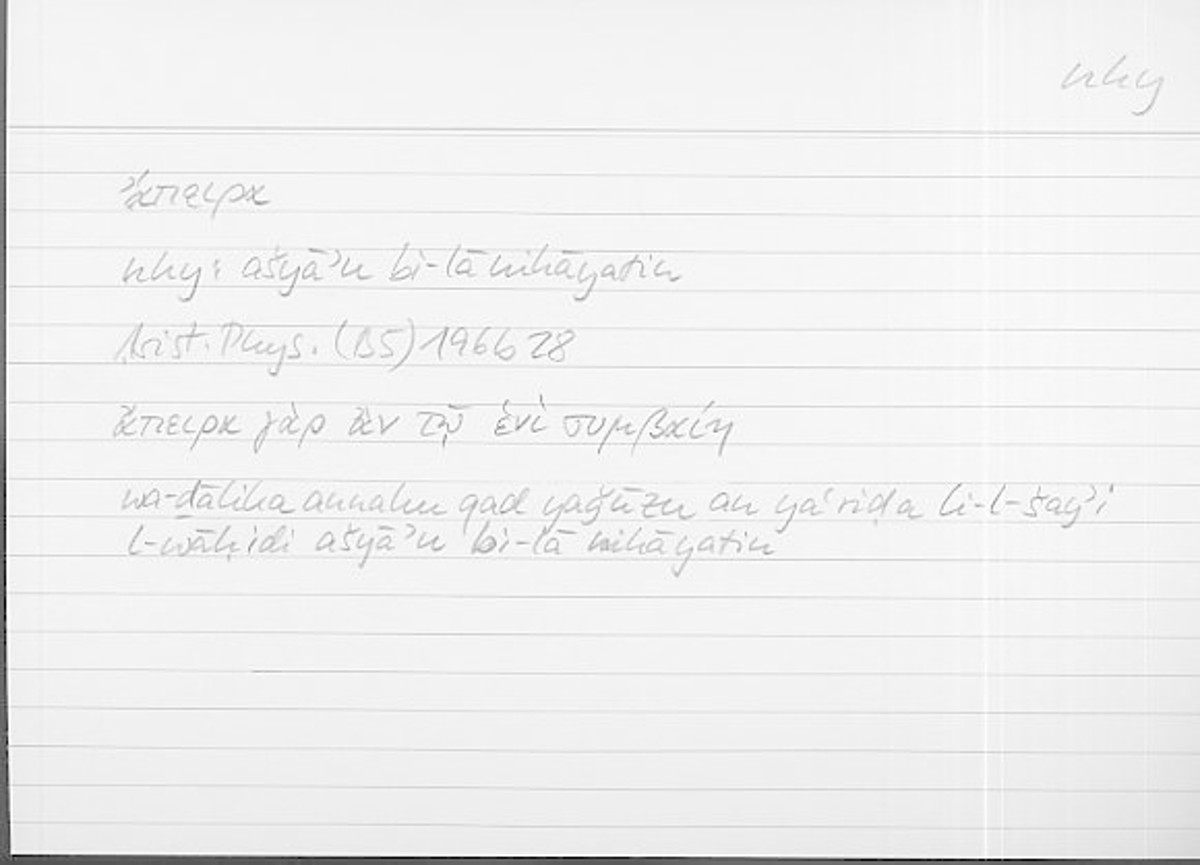 nhy
ἄπειρα
nhy: ašyāʾu bi-lā nihāyatin
Arist. Phys. (B5) 196b28
ἄπειρα γὰρ ἂν τῷ ἑνὶ συμβαίη
wa-ḏālika annahu qad yaǧūzu an yaʿriḍa li-l-šayʾi
l-wāḥidi ašyāʾu bi-lā nihāyatin